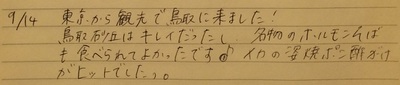 9/14 東京から観光で鳥取に来ました!
鳥取砂丘はキレイだったし、名物のホルモンそば
も食べられてよかったです♪ イカの姿焼ポン酢がけ
がヒットでしたっ。